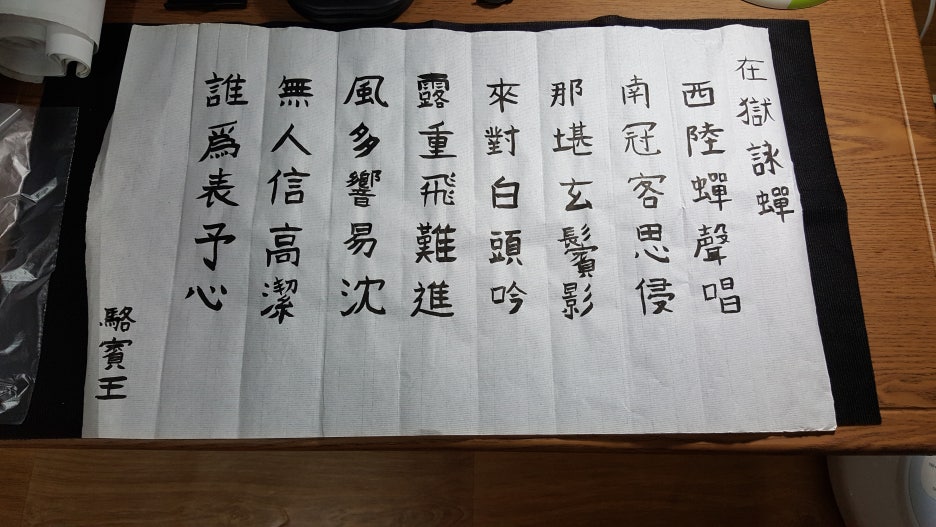 在獄詠蟬
西陸蟬聲唱
南冠客思侵
那堪玄鬢影
來對白頭吟
露重飛難進
風多響易沈
無人信高潔
誰爲表予心
駱賓王